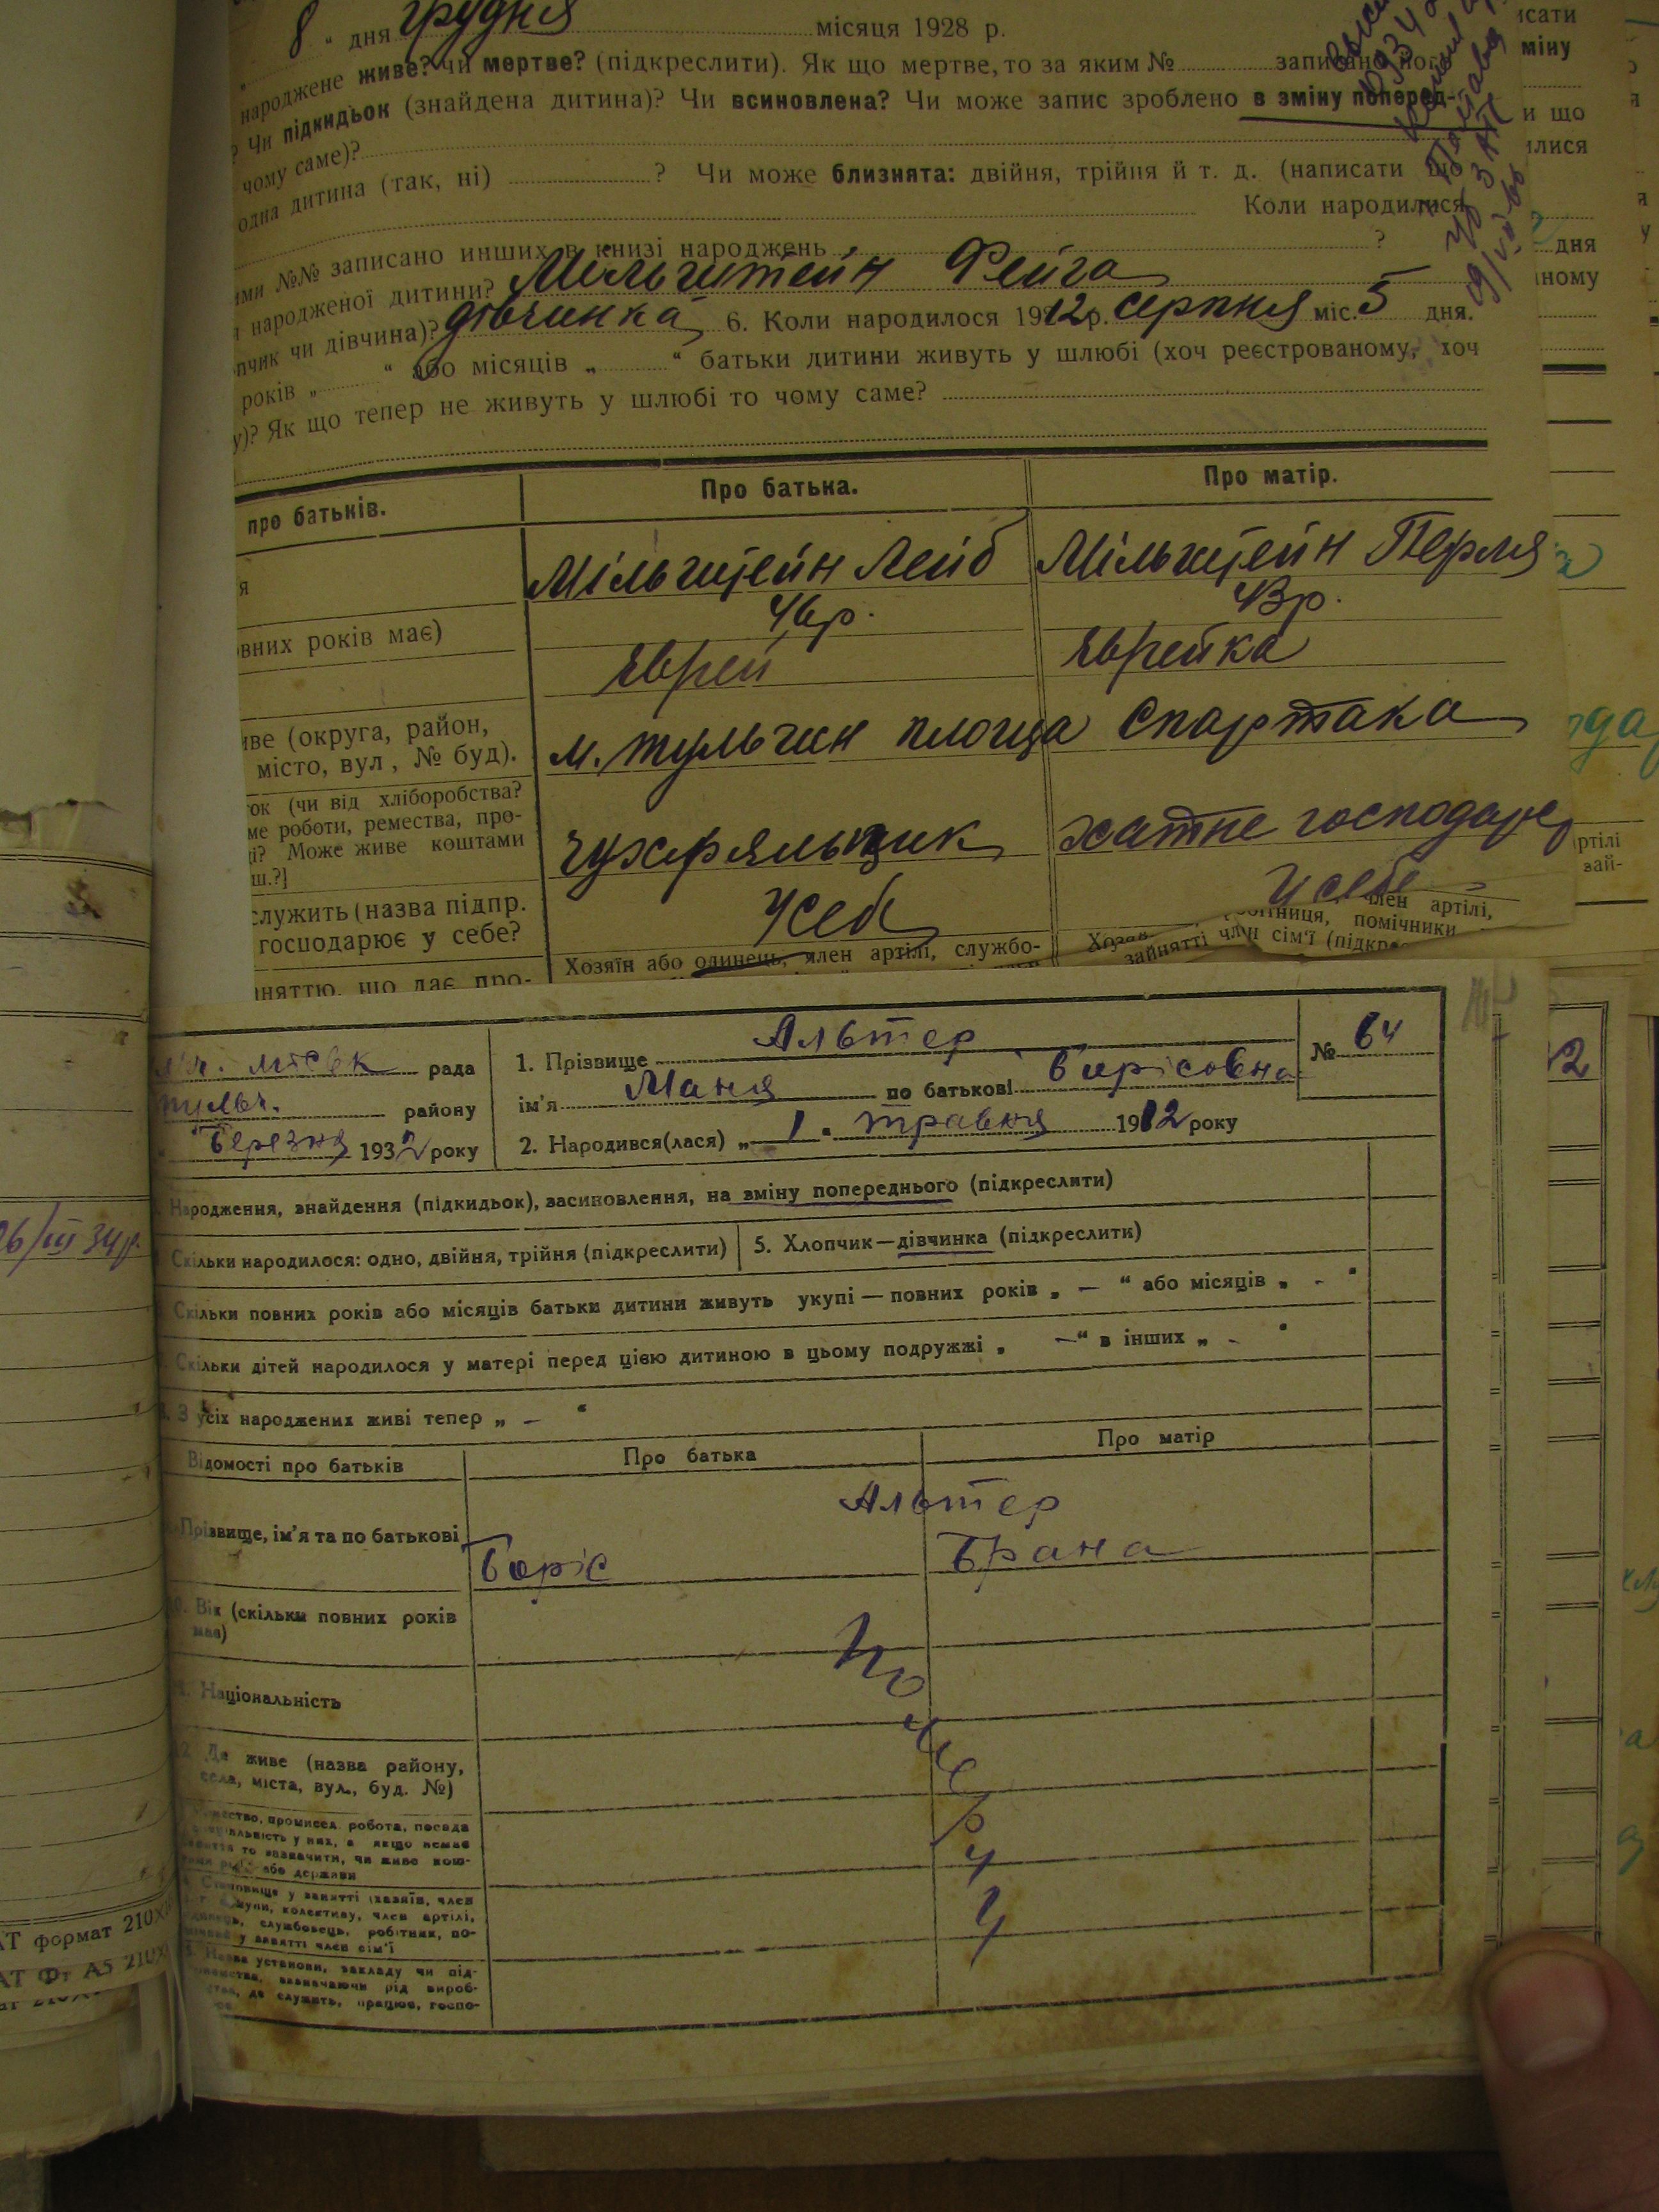 8 " дня грудня місяця 1928 р.
народжене живе? чи мертве? (підкреслити). Як що мертве, то за яким № записано його
? Чи підкидьок (знайдена дитина)? Чи всиновлена? Чи може запис зроблено в зміну поперед-
чому саме)?
одна дитина (так, ні) ? Чи може близнята: двійня, трійня й т. д. (написати що
Коли народилися,
ими №№ записано инших в книзі народжень ?
я народженої дитини? Мільштейн Фейга
пчик чи дівчина)? дівчинка 6. Коли народилося 1912 р. серпня міс. 5 дня.
років „ " або місяців „ " батьки дитини живуть у шлюбі (хоч реєстрованому, хоч
у)? Як що тепер не живуть у шлюбі то чому саме?
про батьків. Про батька. Про матір.
я Мільштейн Лейб Мільштейн Перля
вних років має) 46р. 43р.
Єврей Єврейка
иве (округа, район,
місто, вул, № буд).
м. Тульчин площа Спартака
ок (чи від хліборобства?
ме роботи, ремества, про-
ці? Може живе коштами
ш.?]
хатне господарс
служить (назва підпр.
господарює у себе?
У себе У себе
Хозяїн або одинець, член артілі, службо-
член артілі,
помічники
зайнятті член сім'ї
няттю, що дає про-
исати
міну
и що
лися
дня
ному
ртілі
зай-
міськ рада
Тульч. району
Березня 1932 року
1. Прізвище Альтер
№ 64
ім'я Маня по батькові Борісовна
2. Народився(лася) „ 1 " травня 1912 року
Народження, знайдення (підкидьок), засиновлення, на зміну попереднього (підкреслити)
Скільки народилося: одно, двійня, трійня (підкреслити)
5. Хлопчик—дівчинка (підкреслити)
Скільки повних років або місяців батьки дитини живуть укупі — повних років „ — " або місяців „ - "
Скільки дітей народилося у матері перед цією дитиною в цьому подружжі „ —" в інших „ - "
З усіх народжених живі тепер „ – "
Відомості про батьків Про батька Про матір
Прізвище, ім'я та по батькові
Альтер
Боріс Брана
Вік (скільки повних років
має)
Національність
Де живе (назва району,
села, міста, вул., буд. №)
промисел, робота, посада
у них, а якщо немає
то зазначити, чи живе кош-
або держави
Становище у занятті (хазяїн, член
колективу, член артілі,
службовець, робітник, по-
у занятті член сім'ї
Назва установи, закладу чи під-
зазначаючи рід вироб-
де служить, працює, госпо-
26/III 34р.
АТ формат 210X
АТ Фт А5 210X